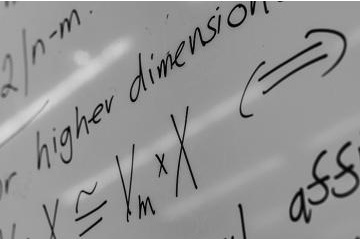 2|n-m.
higher dimension
(⟹)
X ≅ Y_m × X
aff